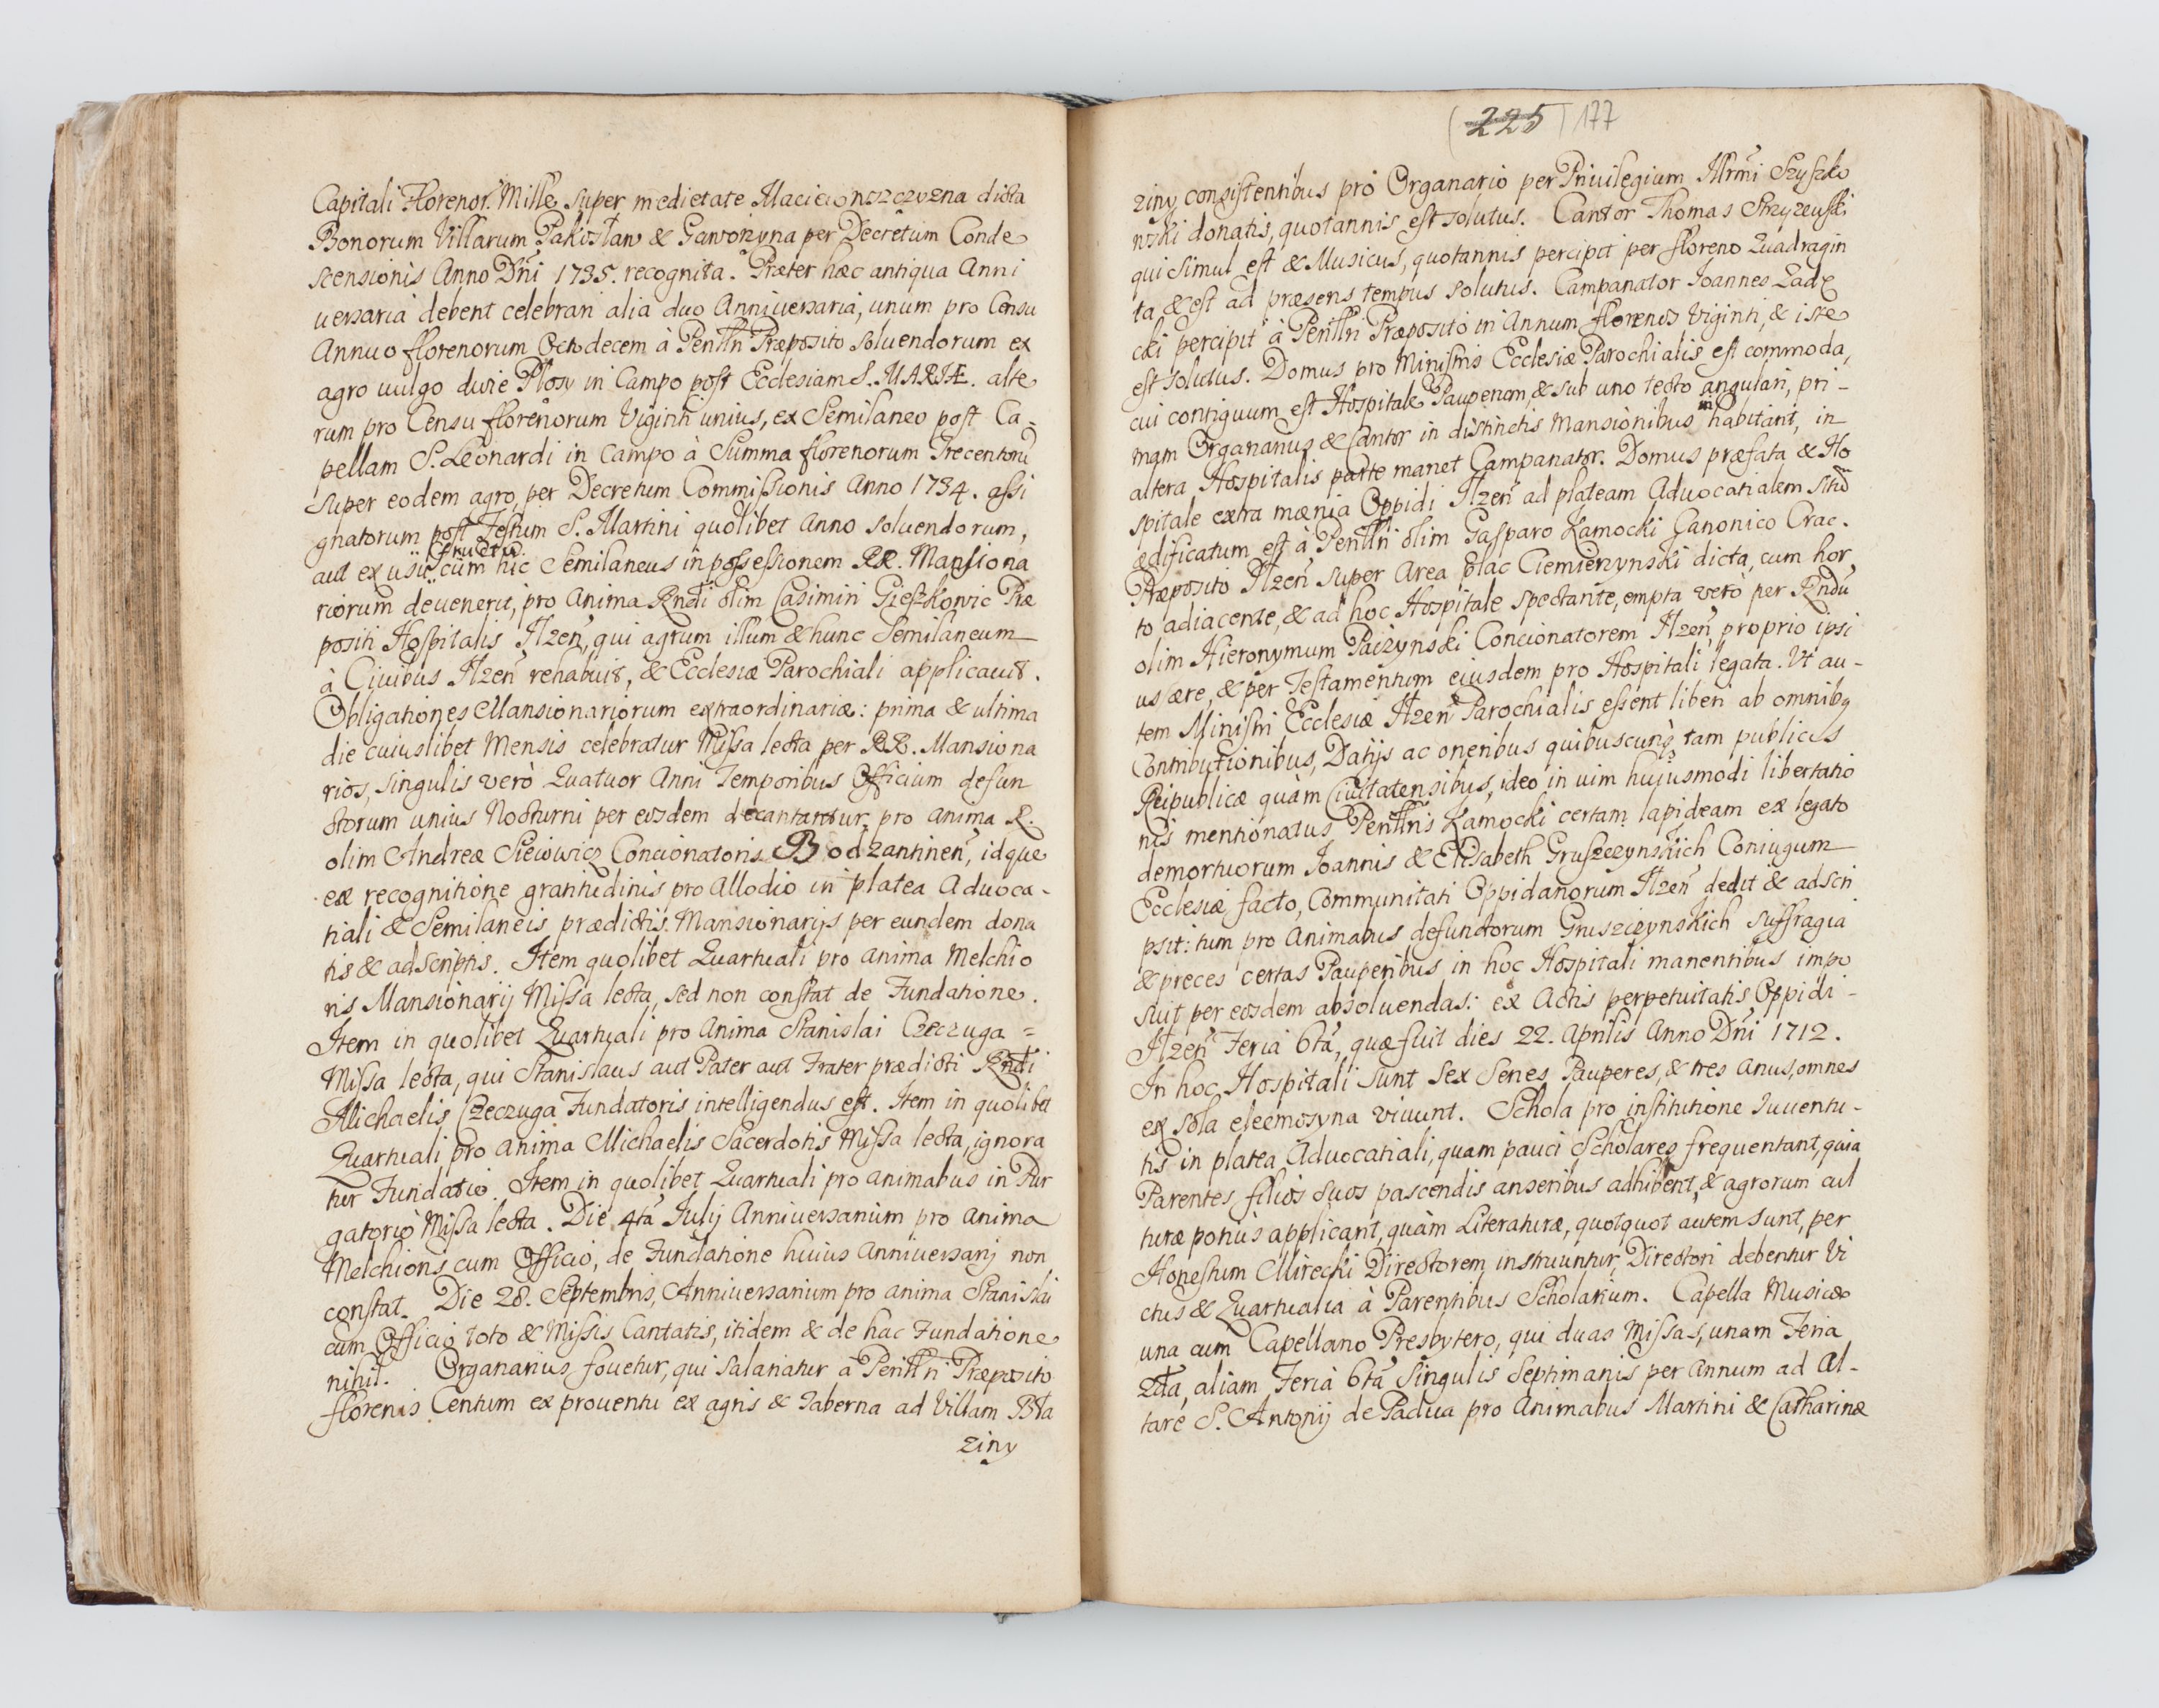 Capitali Florenor. Mille super medietate Macieionszczyzna dicta
Bonorum Villarum Pakosław & Gawronyna per Decretum Conde
scensionis Anno Dñi 1735. recognita. Præter hæc antiqua Anni
uersaria debent celebrari alia duo Anniuersaria, unum pro Censu
Annuo florenorum Octodecem à Penſſri Præposito soluendorum ex
agro uulgo dwie Plosy in Campo post Ecclesiam S. MARIÆ. alte
rum pro Censu florenorum Viginti unius, ex Semilaneo post Ca=
pellam S. Leonardi in Campo à Summa florenorum Trecentorũ
super eodem agro, per Decretum Commissionis Anno 1734. assi
gnatorum post Festum S. Martini quolibet Anno soluendorum,
aut ex usu fructu. cùm hic Semilaneus in possessionem RR. Mansiona
riorum deuenerit, pro Anima Rndi olim Casimiri Greszkowic Præ
positi Hospitalis Ilzeñ, qui agrum illum & hunc Semilaneum
à Ciuibus Ilzeñ rehabuit, & Ecclesiæ Parochiali applicauit.
Obligationes Mansionariorum extraordinariæ: prima & ultima
die cuiuslibet Mensis celebratur Missa lecta per RR. Mansiona
rios, singulis verò Quatuor Anni Temporibus Officium defun
ctorum unius Nocturni per eosdem decantantur, pro Anima R.
olim Andreæ Siewicz Concionatoris Bodzantineñ, idque
ex recognitione gratitudinis pro Allodio in platea Aduoca-
tiali & Semilaneis prædictis Mansionarijs per eundem dona
tis & adscriptis. Item quolibet Quartuali pro Anima Melchio
ris Mansionarij Missa lecta, sed non constat de Fundatione.
Item in quolibet Quartuali pro Anima Stanislai Czeczuga =
Missa lecta, qui Stanislaus aut Pater aut Frater prædicti Rndi
Michaelis Czeczuga Fundatoris intelligendus est. Item in quolibet
Quartuali pro Anima Michaelis Sacerdotis Missa lecta, ignora
tur Fundatio. Item in quolibet Quartuali pro Animabus in Pur
gatorio Missa lecta. Die 4tâ Julij Anniuersarium pro Anima
Melchioris cum Officio, de Fundatione huius Anniuersarij non
constat. Die 28. Septembris, Anniuersarium pro Anima Stanislai
cum Officio toto & Missis Cantatis, itidem & de hac Fundatione
nihil. Organarius fouetur, qui salariatur à Penſſri Præposito
florenis Centum ex prouentu ex agris & Taberna ad Villam Bła
ziny
(225) 177
ziny consistentibus pro Organario per Priuilegium Illrmi Szyszko
wski donatis, quotannis est solutus. Cantor Thomas Strzyzewski
qui simul est & Musicus, quotannis percipit per floreno Quadragin
ta & est ad præsens tempus solutus. Campanator Joannes Zadz
cki percipit à Penſſri Præposito in Annum florenos Viginti, & iste
est solutus. Domus pro Ministris Ecclesiæ Parochialis est commoda,
cui contiguum est Hospitale Pauperum, & sub uno tecto angulari, pri-
mam Organarius & Cantor in distinctis Mansionibus inhabitant, in
altera Hospitalis parte manet Campanator. Domus præfata & Ho
spitale extra mænia Oppidi Ilzeñ ad plateam Aduocatialem sitũ
ædificatum est à Penſſri olim Gasparo Zamocki Canonico Crac.
Præposito Ilzeñ super Area plac Ciemierzynski dicta, cum hor
to adiacente, & ad hoc Hospitale spectante, empta verò per Rndũ
olim Hieronymum Paczynski Concionatorem Ilzeñ, proprio ipsi
us ære, & per Testamentum eiusdem pro Hospitali legata. Ut au-
tem Ministri Ecclesiæ Ilzeñ Parochialis essent liberi ab omnibq
Contributionibus, Datijs ac oneribus quibuscunq, tam publicis
Reipublicæ quàm Ciuitatensibus, ideo in uim huiusmodi libertatio
nis mentionatus Penſſris Zamocki certam lapideam ex legato
demortuorum Joannis & Elisabeth Gruszczynskich Coniugum
Ecclesiæ facto, Communitati Oppidanorum Ilzeñ dedit & adscri
psit: tum pro Animabus defunctorum Gruszczynskich suffragia
& preces certas Pauperibus in hoc Hospitali manentibus impo
suit per eosdem absoluendas: ex Actis perpetuitatis Oppidi-
Ilzeñ Feria 6tâ, quæ fuit dies 22. Aprilis Anno Dñi 1712.
In hoc Hospitali sunt sex Senes Pauperes, & tres Anus, omnes
ex sola eleemosyna viuunt. Schola pro institutione Juuentu-
tis in platea Aduocatiali, quam pauci Scholares frequentant, quia
Parentes filios suos pascendis anseribus adhibent, & agrorum cul
turæ potius applicant, quàm Literaturæ, quotquot autem sunt, per
Honestum Mirecki Directorem instruuntur, Directori debentur Vi
ctus & Quartualia à Parentibus Scholarium. Capella Musicæ
una cum Capellano Presbytero, qui duas Missas, unam Feria
2da, aliam Feria 6tâ Singulis Septimanis per Annum ad Al-
tare S. Antonij de Padua pro Animabus Martini & Catharinæ